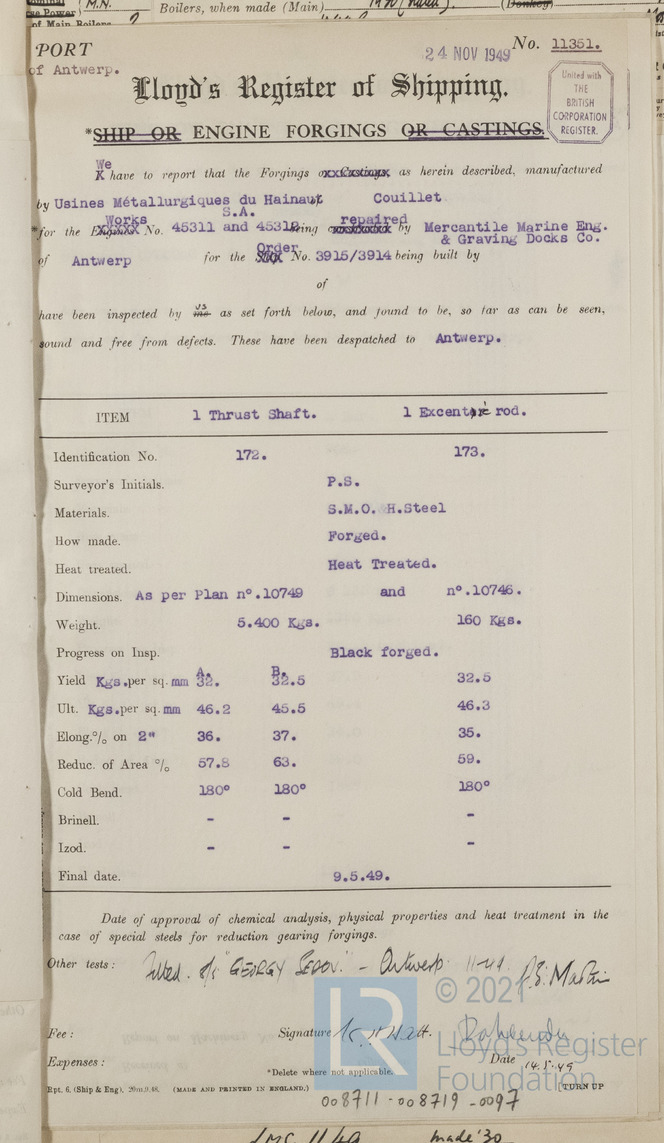 Boilers, when made (Main)
of Main Boilers
PORT
of Antwerp.
24 NOV 1949 No. 11351.
Lloyd's Register of Shipping.
United with
THE
BRITISH
CORPORATION
REGISTER.
*SHIP OR ENGINE FORGINGS OR CASTINGS.
We
have to report that the Forgings or Castings, as herein described, manufactured
by Usines Métallurgiques du Hainaut of Couillet
S.A.
Works repaired
*for the Engine No. 45311 and 45312 being by Mercantile Marine Eng.
& Graving Docks Co.
Order
of Antwerp for the Ship No. 3915/3914 being built by
of
us
have been inspected by me as set forth below, and found to be, so far as can be seen,
sound and free from defects. These have been despatched to Antwerp.
ITEM 1 Thrust Shaft. 1 Excenter rod.
Identification No. 172. 173.
Surveyor's Initials. P.S.
Materials. S.M.O. H.Steel
How made. Forged.
Heat treated. Heat Treated.
Dimensions. As per Plan n°.10749 and n°.10746.
Weight. 5.400 Kgs. 160 Kgs.
Progress on Insp. Black forged.
A. B.
Yield Kgs.per sq. mm 32. 32.5 32.5
Ult. Kgs.per sq. mm 46.2 45.5 46.3
Elong.% on 2" 36. 37. 35.
Reduc. of Area % 57.8 63. 59.
Cold Bend. 180° 180° 180°
Brinell. - - -
Izod. - - -
Final date. 9.5.49.
Date of approval of chemical analysis, physical properties and heat treatment in the
case of special steels for reduction gearing forgings.
Other tests: Fitted. s/s "GEORGY SEDOV" - Antwerp 11-49.
© 2021
LR
Lloyd's Register
Foundation
Fee: Signature
Expenses: Date 14.5.49
*Delete where not applicable.
Rpt. 6. (Ship & Eng). (MADE AND PRINTED IN ENGLAND.) [TURN UP
008711-008719-0097
LMC 11.49 made '30